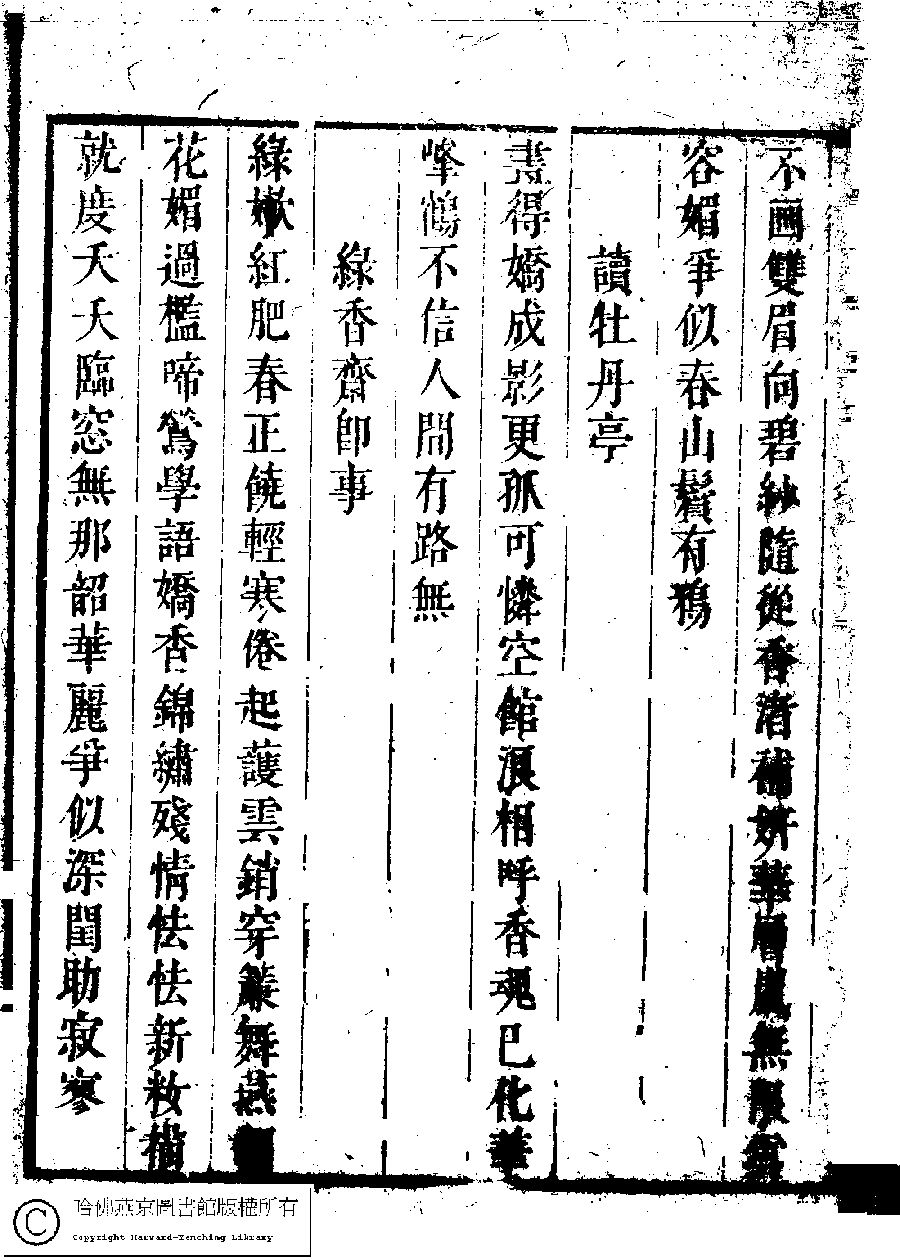 不画雙眉向碧紗隨從香渚補妍華層鬟無限
容媚爭似春山鬢有鴉
讀牡丹亭
畫得嬌成影更孤可憐空館浪相呼香魂已化華
鶴不信人間有路無
綠香齋卽事
綠嫩紅肥春正饒輕寒倦起護雲銷穿叢舞燕
花媚過檻啼鶯學語嬌香錦繡殘情怯怯新妝
就度夭夭臨窓無那韶華麗爭似深閨助寂寥
哈佛燕京圖書館版權所有
Copyright Harvard-Yenching Library